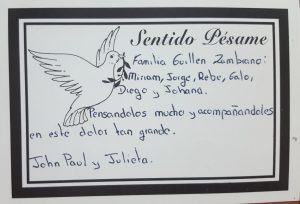 Sentido Pésame
Familia Guillen Zambrano:
Miriam, Jorge, Rebe, Galo,
Diego y Johana.
Pensandolos mucho y acompañandoles
en este dolor tan grande.
John Paul y Julieta.